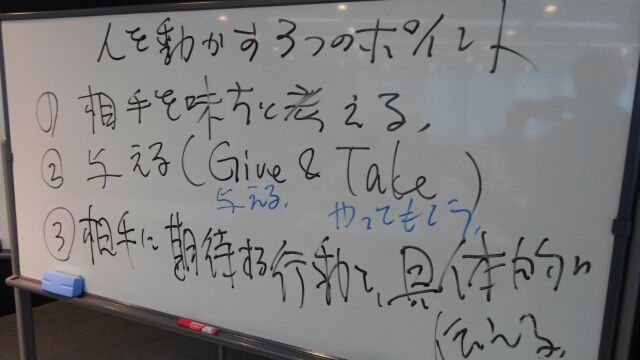 人を動かす3つのポイント
① 相手を味方と考える、
② 与える(Give & Take)
与える、 やってもらう、
③ 相手に期待する行動を、具体的に
伝える、